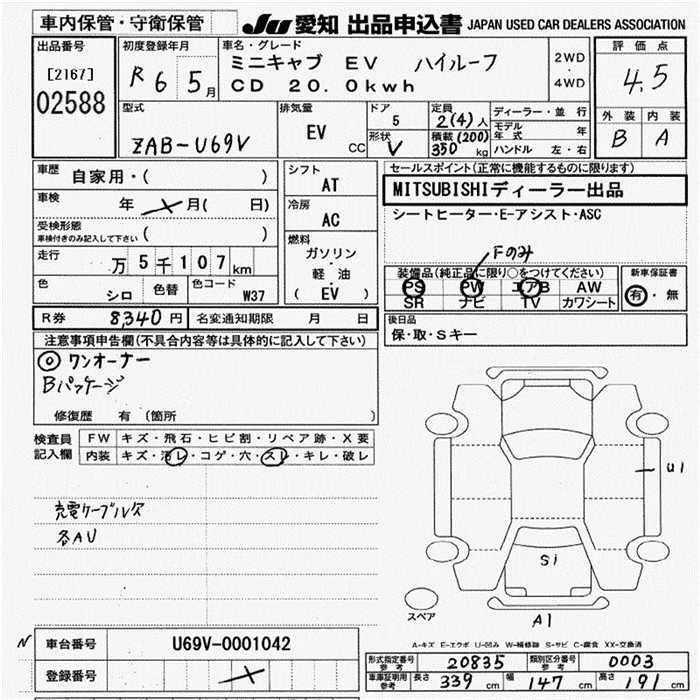 車内保管・守衛保管
JU 愛知 出品申込書 JAPAN USED CAR DEALERS ASSOCIATION
出品番号
[2167]
02588
初度登録年月
R 6 5月
車名・グレード
ミニキャブ EV ハイルーフ
CD 20.0kwh
2WD
・
4WD
評価点
4.5
外装 内装
B A
型式
ZAB-U69V
排気量
EV
CC
ドア
5
形状
V
定員
2(4)人
積載(200)
350kg
ディーラー・並行
モデル年式 年
ハンドル 左・右
車歴
自家用・( )
車検 年 月( 日)
受検形態
車検付きのみ記入して下さい ( )
走行
万5千107km
色
シロ
色替
色コード
W37
シフト
AT
冷房
AC
燃料
ガソリン
・
軽・油
( EV )
R券 8,340円 名変通知期限 月 日
セールスポイント(正常に機能するものに限ります)
MITSUBISHIディーラー出品
シートヒーター・E-アシスト・ASC
Fのみ
装備品(純正品に限り○をつけてください)
PS PW エアB AW
SR ナビ TV カワシート
新車保証書
有・無
後日品
保・取・Sキー
注意事項申告欄(不具合内容等は具体的に記入して下さい)
◎ワンオーナー
Bパッケージ
修復歴 有 (箇所 )
検査員記入欄
FW キズ・飛石・ヒビ割・リペア跡・X要
内装 キズ・汚レ・コゲ・穴・スレ・キレ・破レ
充電ケーブル欠
各AU
U1
S1
A1
スペア
A-キズ E-エクボ U-凹み W-補修跡 S-サビ C-腐食 XX-交換済
N 車台番号 U69V-0001042
登録番号
形式指定番号 参考 20835 類別区分番号 参考 0003
車庫証明用 参考 長さ 339cm 幅 147cm 高さ 191cm